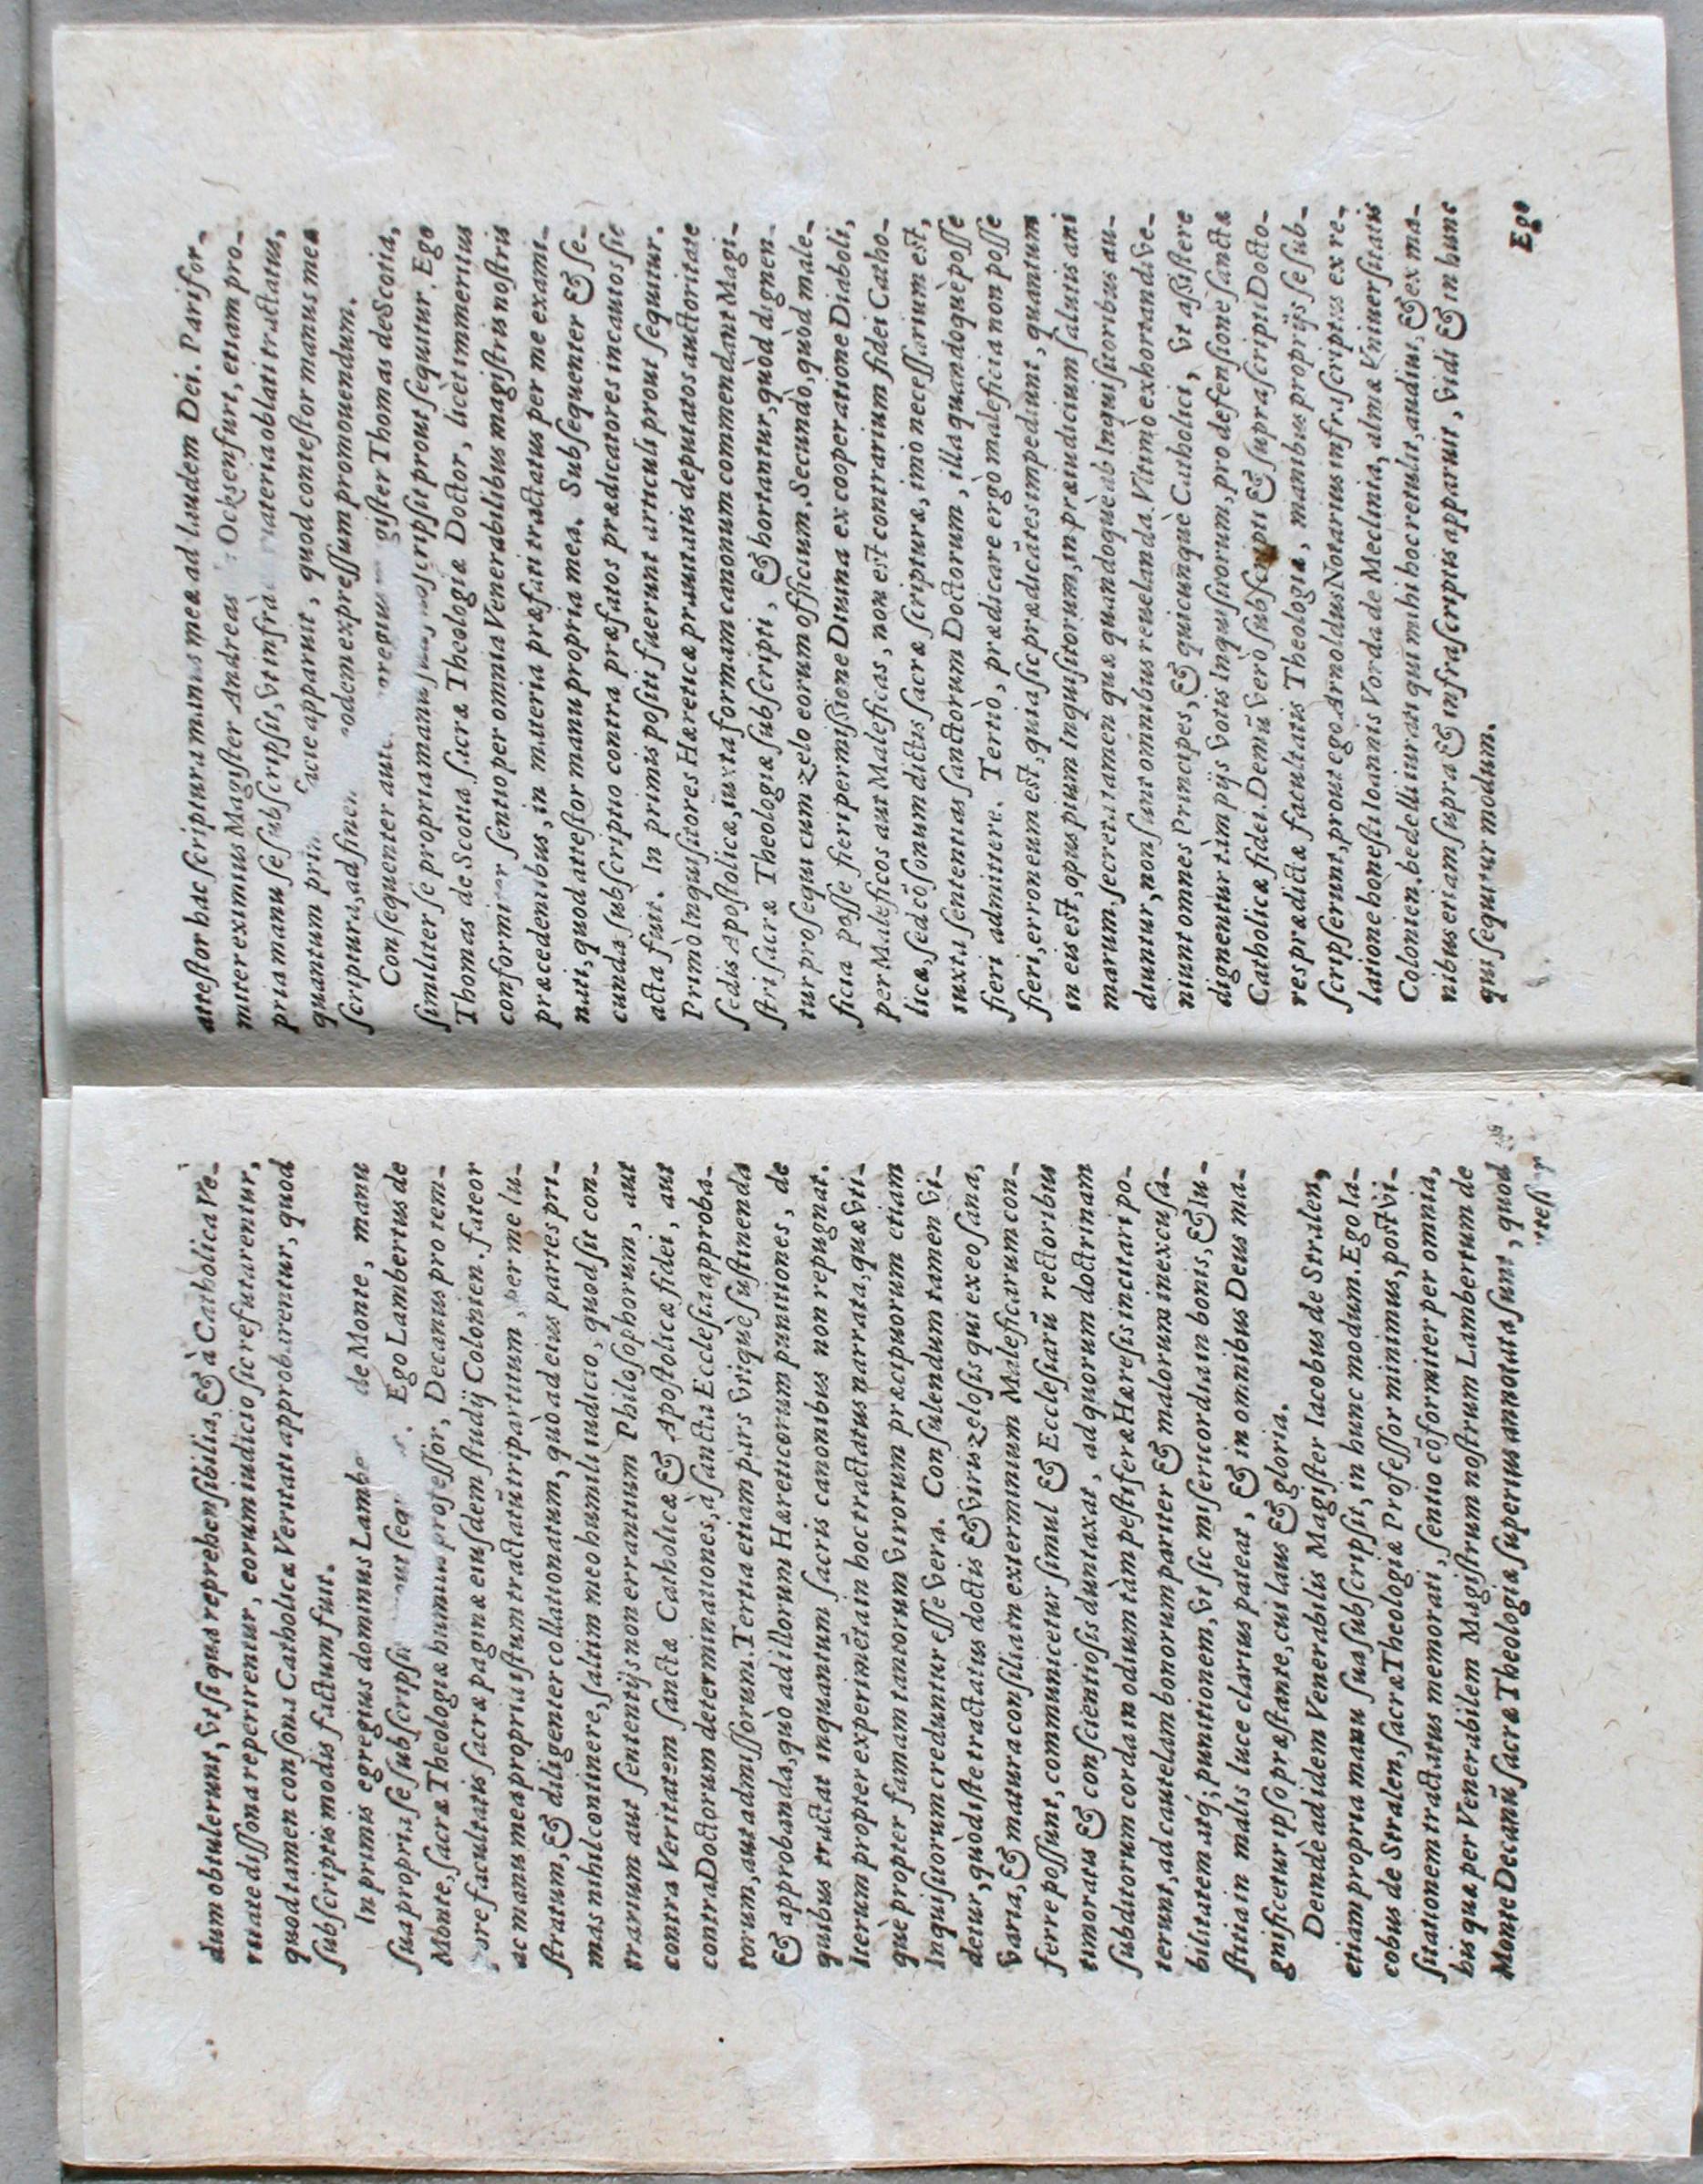 dum obtulerunt, vt si qua reprehensibilia, & à Catholica ve-
ritate dissona reperirentur, eorum iudicio sic refutarentur,
quod tamen consona Catholicæ veritati approbarentur, quod
subscriptis modis factum fuit.
In primis egregius dominus Lambe de Monte, manu
sua propria se subscripsit Ego Lambertus de
Monte, sacræ Theologiæ humilis professor, Decanus pro tem-
pore facultatis sacræ paginæ eiusdem studij Colonien. fateor
ac manu mea propria istum tractatũ tripartitum, per me lu-
stratum, & diligenter collationatum, quò ad eius partes pri-
mas nihil continere, saltim meo humili iudicio, quod sit con-
trarium aut sententijs non errantium Philosophorum, aut
contra Veritatem sanctæ Catholicæ & Apostolicæ fidei, aut
contra Doctorum determinationes, à sancta Ecclesia approba-
torum, aut admissorum. Tertia etiam pars vtiquè sustinenda
& approbanda, quò ad illorum Hæreticorum punitiones, de
quibus tractat inquantum sacris canonibus non repugnat.
Iterum propter experimẽta in hoc tractatus narrata, quæ vti-
què propter famam tantorum virorum præcipuorum etiam
Inquisitorum creduntur esse vera. Consulendum tamen vi-
detur, quòd iste tractatus doctis & viris zelosis qui ex eo sana,
varia, & matura consilia in exterminium Maleficarum con-
ferre possunt, communicetur simul & Ecclesiarũ rectoribus
timoratis & conscientiosis duntaxat, ad quorum doctrinam
subditorum corda in odium tàm pestiferæ Hæresis incitari po-
terunt, ad cautelam bonorum pariter & malorum inexcusa-
bilitatem atq́; punitionem, vt sic misericordia in bonis, & Iu-
stitia in malis luce clarius pateat, & in omnibus Deus ma-
gnificetur ipso præstante, cui laus & gloria.
Deindè ad idem Venerabilis Magister Iacobus de Stralen,
etiam propria manu sua subscripsit, in hunc modum. Ego Ia-
cobus de Stralen, sacræ Theologiæ Professor minimus, post vi-
sitationem tractatus memorati, sentio cõformiter per omnia,
his quæ per Venerabilem Magistrum nostrum Lambertum de
Monte Decanũ sacræ Theologiæ, superius annotata sunt, quod
attestor hac scriptura manus meæ ad laudem Dei. Parifor-
miter eximius Magister Andreas Ochsenfurt, etiam pro-
pria manu se subscripsit, vt infrà materia oblati tractatus,
quantum facie apparuit, quod contestor manus mea
scriptura, ad finem eodem expressum promouendum.
Consequenter egregius gister Thomas de Scotia,
similiter se propria manu subscripsit prout sequitur. Ego
Thomas de Scotia sacræ Theologiæ Doctor, licèt immeritus
conformiter sentio per omnia Venerabilibus magistris nostris
præcedentibus, in materia præfati tractatus per me exami-
nati, quod attestor manu propria mea. Subsequenter & se-
cunda subscriptio contra præfatos prædicatores incautos sic
acta fuit. In primis positi fuerunt articuli prout sequitur.
Primò Inquisitores Hæreticæ prauitatis deputatos auctoritate
sedis Apostolicæ, iuxta formam canonum commendant Magi-
stri sacræ Theologiæ subscripti, & hortantur, quòd dignen-
tur prosequi cum zelo eorum officium. Secundò, quòd male-
ficia posse fieri permissione Diuina ex cooperatione Diaboli,
per Maleficos aut Maleficas, non est contrarium fidei Catho-
licæ, sed cõsonum dictis sacræ scripturæ, imo necessarium est,
iuxta sententias sanctorum Doctorum, illa quandoquè posse
fieri admittere. Tertiò, prædicare ergò maleficia non posse
fieri, erroneum est, quia sic prædicãtes impediunt, quantum
in eis est, opus pium Inquisitorum, in præiudicium salutis ani
marum. secreta tamen quæ quandoquè ab Inquisitoribus au-
diuntur, non sunt omnibus reuelanda. Vltimò exhortandi ve-
niunt omnes Principes, & quicunquè Catholici, vt assistere
dignentur tàm pijs votis Inquisitorum, pro defensione sanctæ
Catholicæ fidei. Demũ verò subscripti & suprascripti Docto-
res prædictæ facultatis Theologiæ, manibus proprijs se sub-
scripserunt, prout ego Arnoldus Notarius infrascriptus ex re-
latione honesti Ioannis Vorda de Meclinia, almæ Vniuersitatis
Colonien. bedelli iurati qui mihi hoc retulit, audiui, & ex ma-
nibus etiam supra & infrascriptis apparuit, vidi & in hunc
qui sequitur modum.
Ego